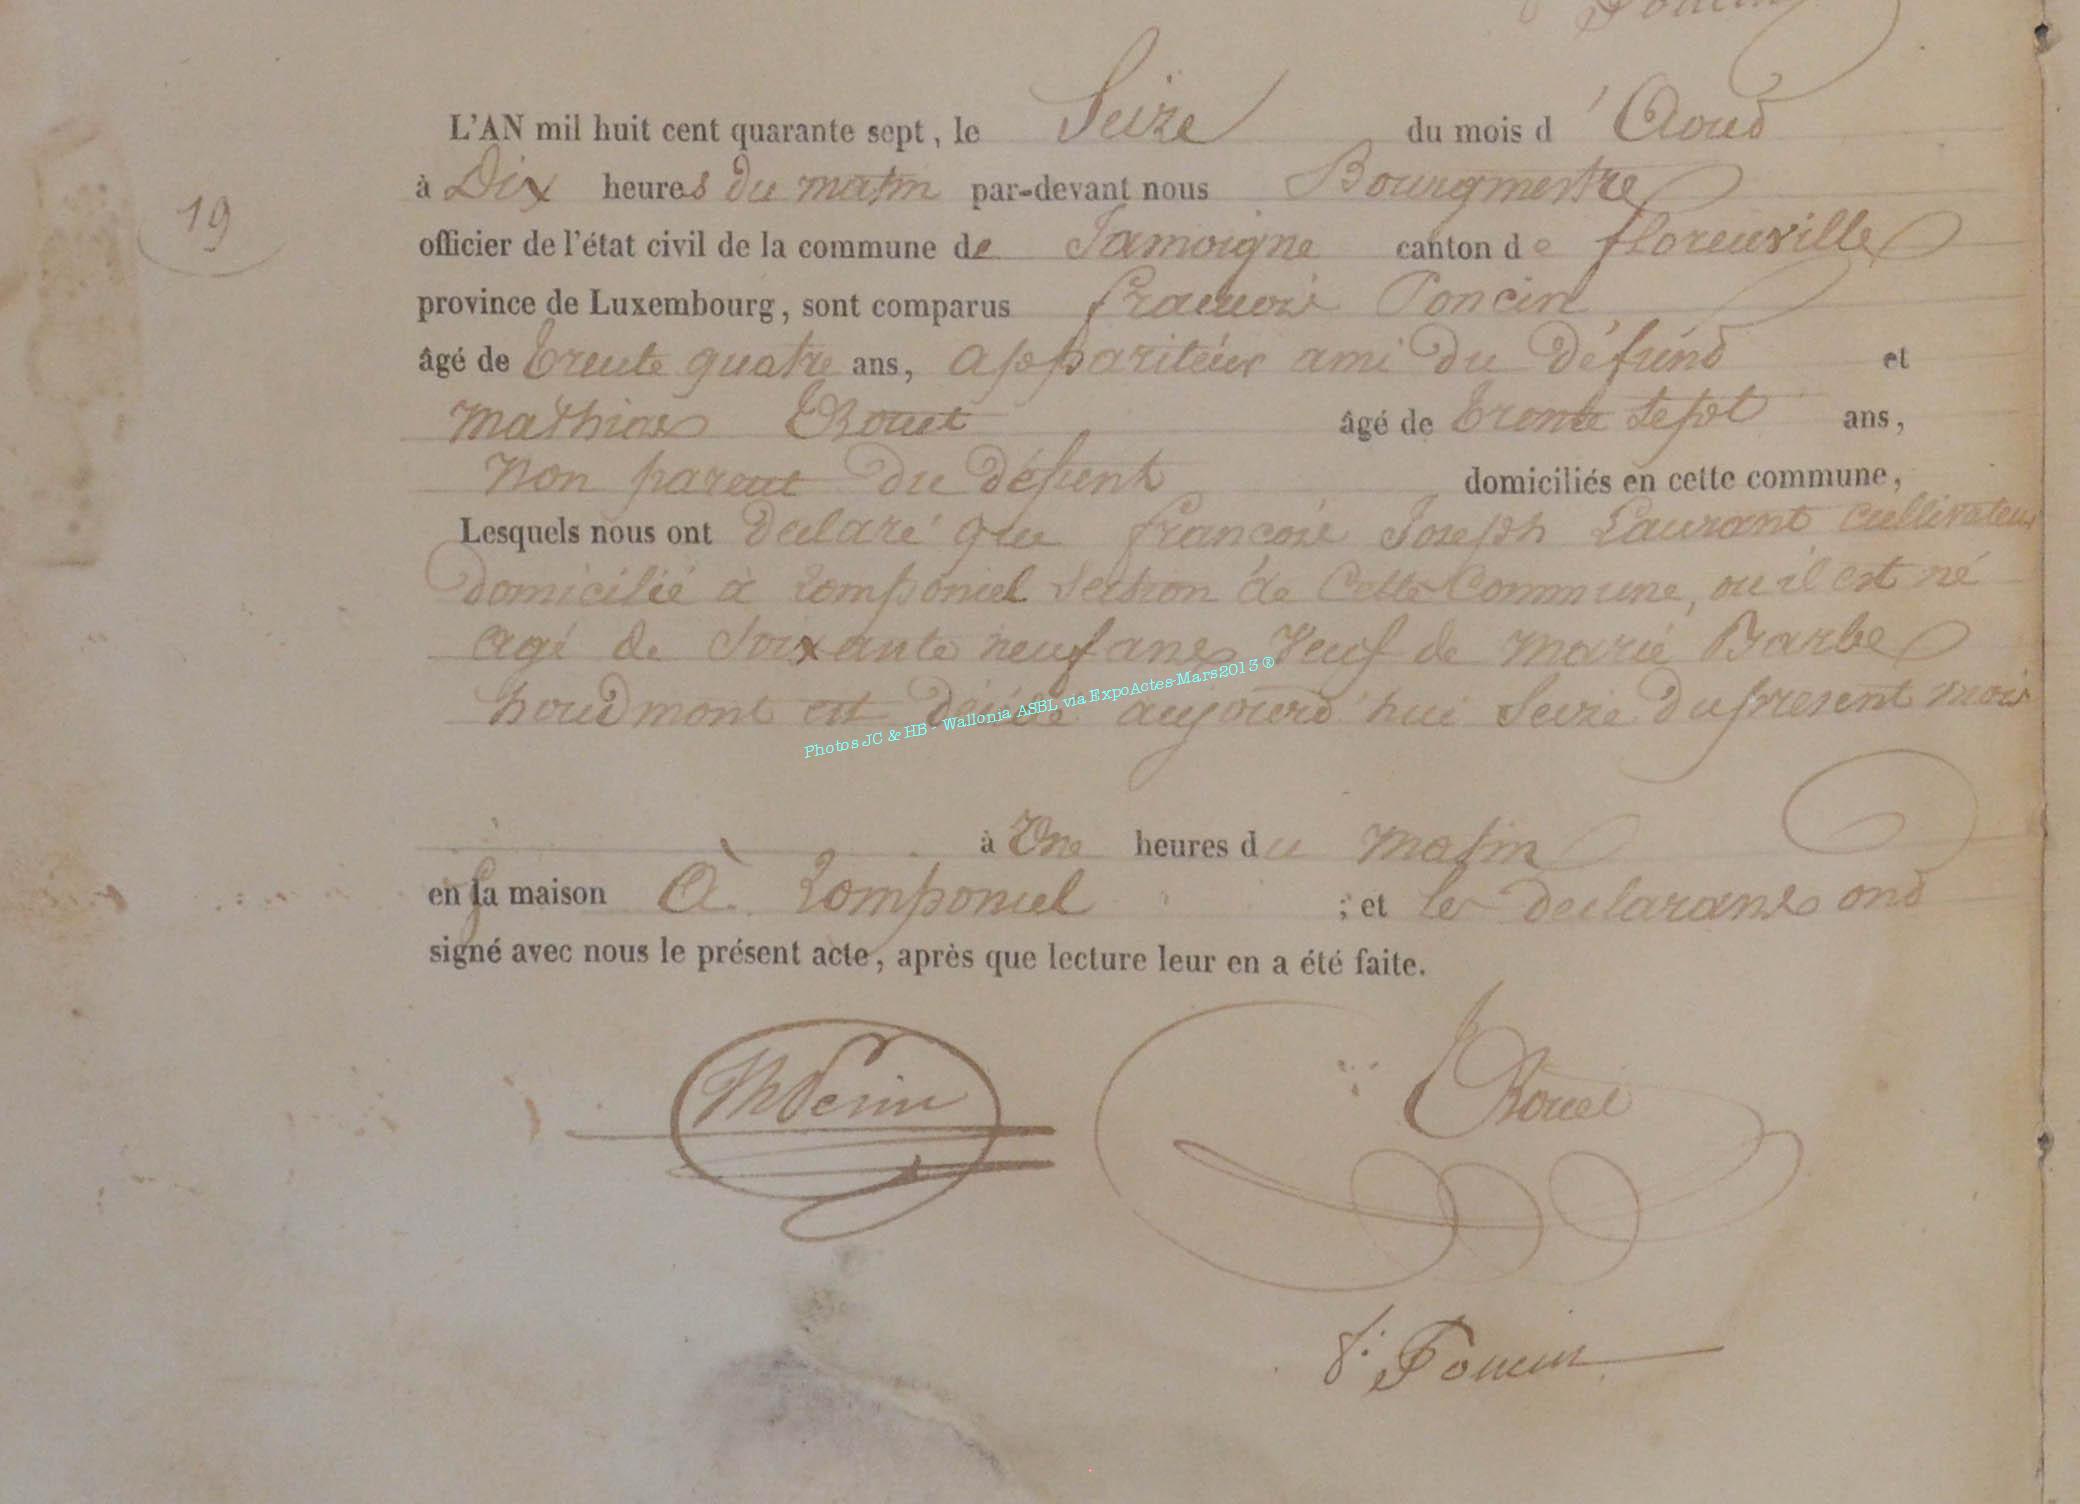 L'AN mil huit cent quarante sept, le Seize du mois d'Aoud
à Dix heures du matin par-devant nous Bourgmestre
19
officier de l'état civil de la commune de Jamoigne canton de florenville
province de Luxembourg, sont comparus francois Poncin
âgé de trente quatre ans, appariteur ami du défund et
mathias Rouet âgé de trente sept ans,
Non parent du défunt domiciliés en cette commune,
Lesquels nous ont declaré que francois Joseph Laurant cultivateur
domicilié à Romponcel Section de Cette Commune, ou il est né
agé de Soixante neuf ans Veuf de marie Barbe
houdmont est décédé aujourd'hui Seize du present mois
Photos JC & HB - Wallonia ASBL via ExpoActes-Mars2013 ®
à Une heures du matin
en sa maison à Romponcel ; et les declarants ond
signé avec nous le présent acte, après que lecture leur en a été faite.
Rouet
f. Poncin